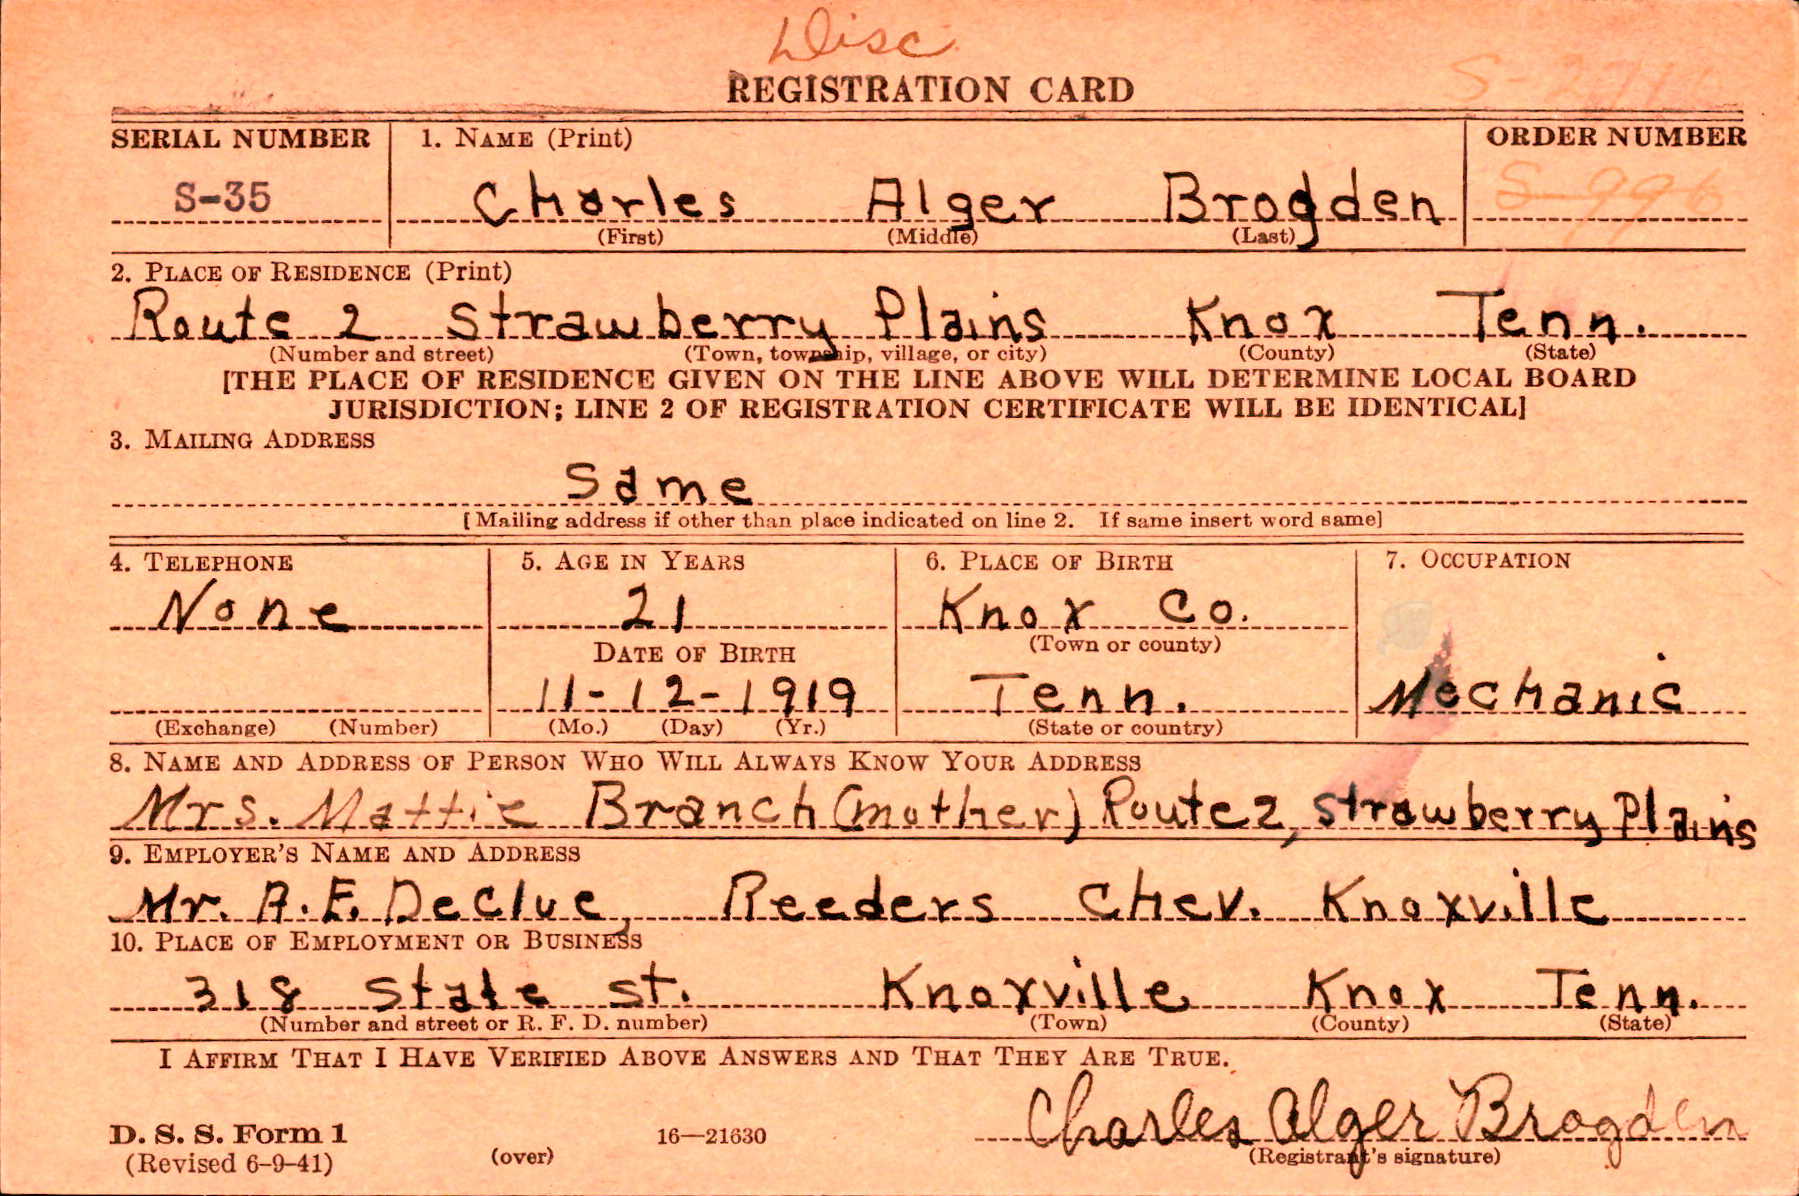 Disc
REGISTRATION CARD
SERIAL NUMBER 1. NAME (Print) ORDER NUMBER
S-35 Charles Alger Brogden S-996
(First) (Middle) (Last)
2. PLACE OF RESIDENCE (Print)
Route 2 Strawberry Plains Knox Tenn.
(Number and street) (Town, township, village, or city) (County) (State)
[THE PLACE OF RESIDENCE GIVEN ON THE LINE ABOVE WILL DETERMINE LOCAL BOARD
JURISDICTION; LINE 2 OF REGISTRATION CERTIFICATE WILL BE IDENTICAL]
3. MAILING ADDRESS
Same
[Mailing address if other than place indicated on line 2. If same insert word same]
4. TELEPHONE 5. AGE IN YEARS 6. PLACE OF BIRTH 7. OCCUPATION
None 21 Knox Co.
(Town or county)
DATE OF BIRTH
11-12-1919 Tenn. Mechanic
(Exchange) (Number) (Mo.) (Day) (Yr.) (State or country)
8. NAME AND ADDRESS OF PERSON WHO WILL ALWAYS KNOW YOUR ADDRESS
Mrs. Mattie Branch (mother) Route 2, Strawberry Plains
9. EMPLOYER'S NAME AND ADDRESS
Mr. A. F. DeClue, Reeders Chev. Knoxville
10. PLACE OF EMPLOYMENT OR BUSINESS
318 State St. Knoxville Knox Tenn.
(Number and street or R. F. D. number) (Town) (County) (State)
I AFFIRM THAT I HAVE VERIFIED ABOVE ANSWERS AND THAT THEY ARE TRUE.
Charles Alger Brogden
D. S. S. Form 1 16—21630
(Revised 6-9-41) (over) (Registrant's signature)